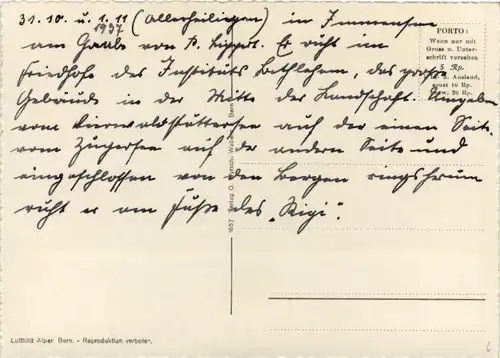 31. 10. u. 1. 11 (Allerheiligen) in Immensee
1937
am Grabe von P. Lippert. Er ruht im
Friedhofe des Instituts Bethlehem, das große
Gebäude in der Mitte der Landschaft. Umgeben
vom Vierwaldstättersee auf der einen Seite
vom Zugersee auf der andern Seite und
eingeschlossen von den Bergen ringsherum
ruht er am Fuße des „Rigi".
PORTO:
Wenn nur mit
Gruss u. Unter-
schrift versehen
5 Rp.
In- u. Ausland,
sonst 10 Rp.
bzw. 20 Rp.
1657 Verlag O. Wyrsch, Wabern - Bern
Luftbild Alpar Bern. - Reproduktion verboten.